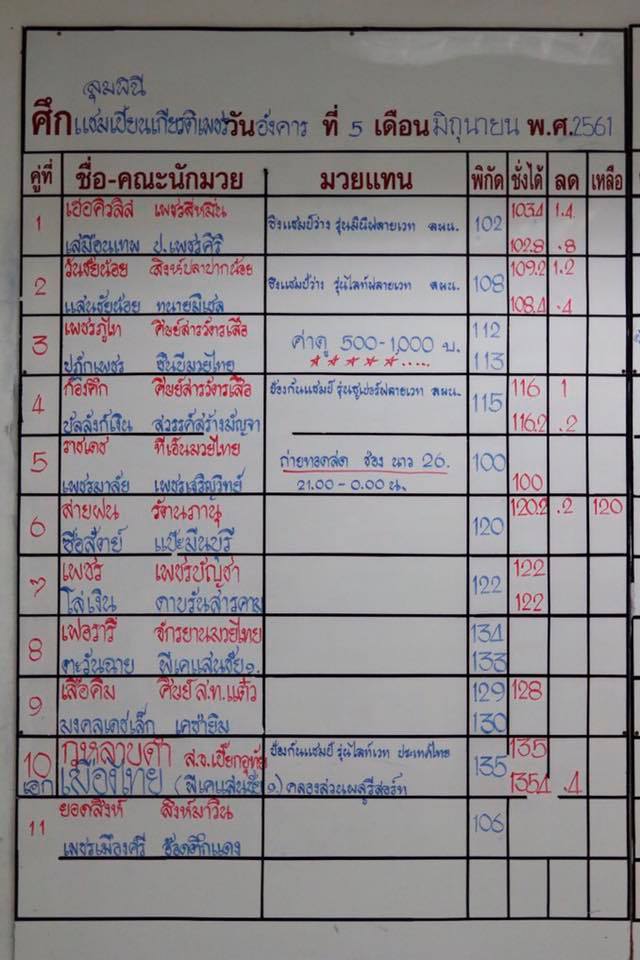 ลุมพินี
ศึกแชมเปี้ยนเกียรติเพชรวันอังคาร ที่ 5 เดือนมิถุนายน พ.ศ.2561
คู่ที่ ชื่อ-คณะนักมวย มวยแทน พิกัด ชั่งได้ ลด เหลือ
1 เฮอคิวลิส เพชรสี่หมื่น ชิงแชมป์ว่าง รุ่นมินิฟลายเวท ลพน. 102 103.4 1.4
เสมือนเทพ ป.เพชรศิริ 102.8 .8
2 วันชัยน้อย สิงห์ปลาปากน้อย ชิงแชมป์ว่าง รุ่นไลท์ฟลายเวท ลพน. 108 109.2 1.2
แสนชัยน้อย ทนายมีเชล 108.4 .4
3 เพชรภูไท ศิษย์สารวัตรเสือ ค่าดู 500-1,000 บ. 112
เพชร ชินบีมวยไทย ★★★★★..... 113
4 ก้องศึก ศิษย์สารวัตรเสือ ป้องกันแชมป์ รุ่นซูเปอร์ฟลายเวท ลพน. 115 116 1
บัลลังก์เงิน สวรรค์สร้างมัญจา 116.2 .2
5 ราชเดช ทีเอ็นมวยไทย ถ่ายทอดสด ช่อง นาว 26. 100
เพชรมาลัย เพชรเจริญวิทย์ 21.00-0.00 น. 100
6 สายฝน รัตนภานุ 120 120.2 .2 120
ซื่อสัตย์ แป๊ะมีนบุรี
7 เพชร เพชรบัญชา 122 122
โล่เงิน ดาบรันสารคาม 122
8 เฟอรารี่ จักรยานมวยไทย 134
ตะวันฉาย พีเคแสนชัยฯ. 133
9 เสือคิม ศิษย์ส.ท.แต๋ว 129 128
มงคลเดชเล็ก เคซ่ายิม 130
10 กุหลาบดำ ส.จ.เปี๊ยกอุทัย ป้องกันแชมป์ รุ่นไลท์เวท ประเทศไทย 135 135
เอก เมืองไทย (พีเคแสนชัยฯ) คลองสวนพลูรีสอร์ท 135.4 .4
11 ยอดสิงห์ สิงห์มาวิน 106
เพชรเมืองศรี อ๊อดตึกแดง